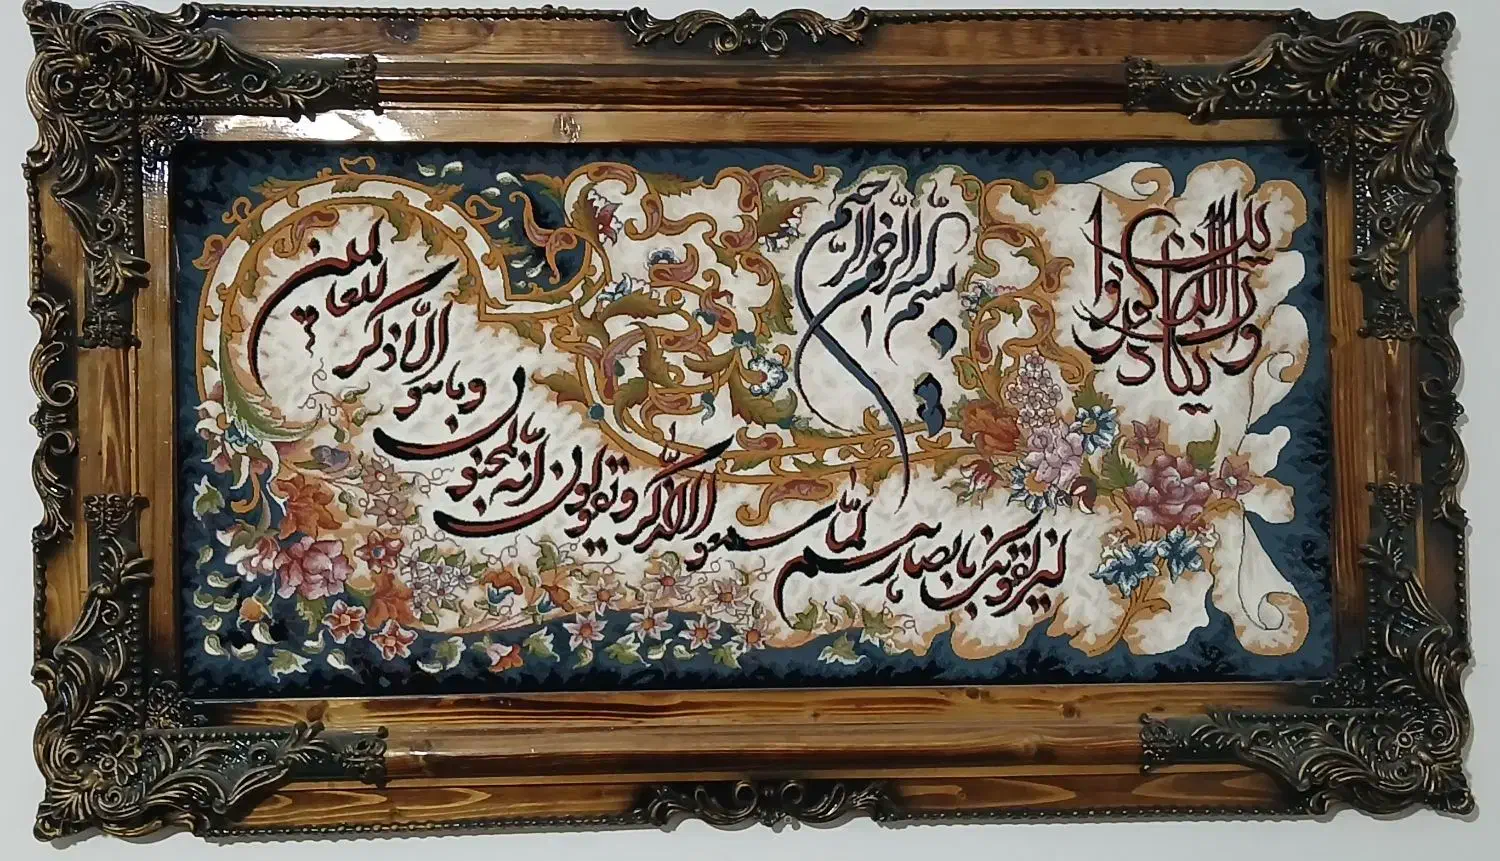 بسم الله الرحمن الرحيم
وان يكاد الذين كفروا
ليزلقونك بابصارهم لما سمعوا الذكر ويقولون انه لمجنون
وما هو الا ذكر للعالمين